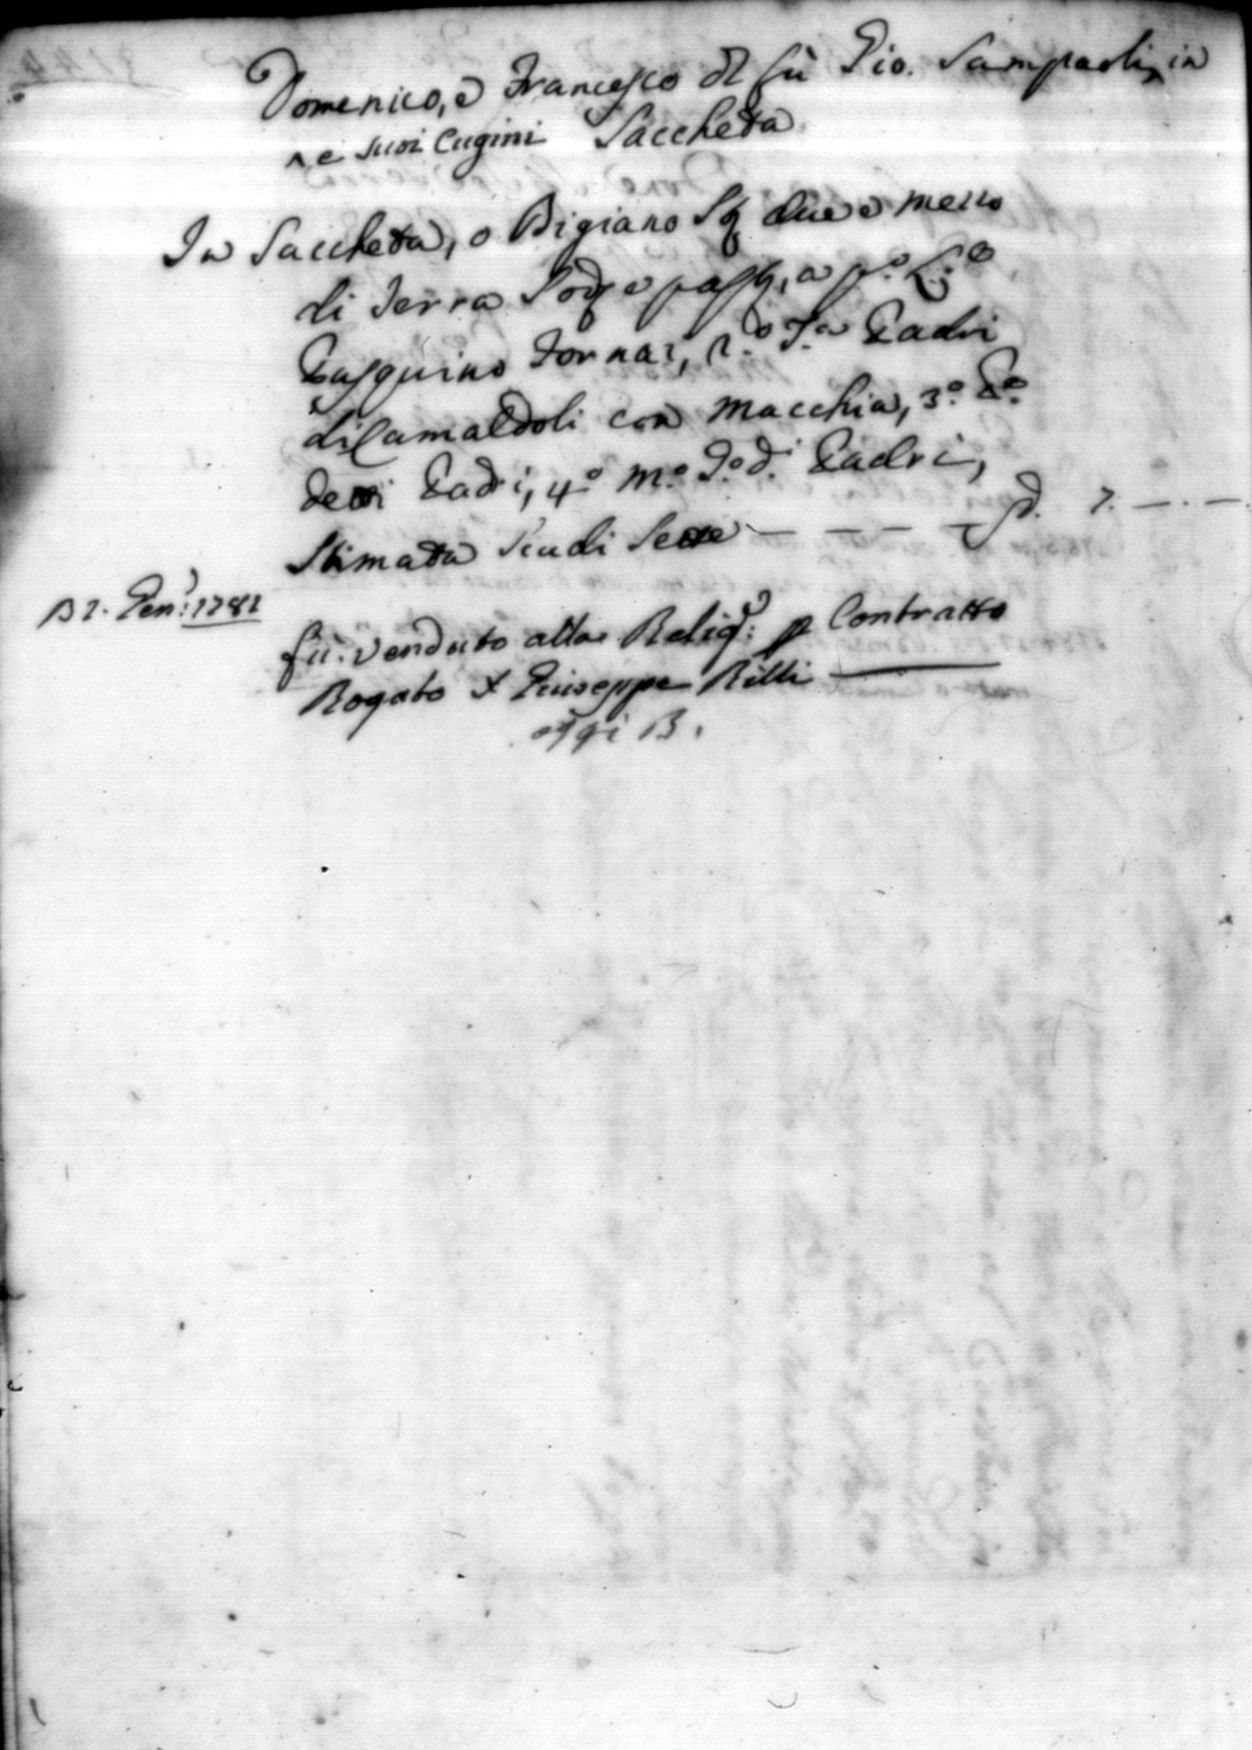 Domenico, e Francesco dl fù Gio. Sampaoli, in
^ e suoi Cugini Saccheta
In Saccheta, o Bigiano Sq due e mezzo
di Terra Sod. e past., a p.º L.º
Pasquino Fornai, 2.º
Padri
di Camaldoli con macchia, 3.º
detti Padri, 4.º m.º d.º d.i Padri,
Stimata Scudi Sette — — — — 7. — . —
B 2. Gen: 1782
fù venduto alla Relig: p Contratto
Rogato x Giuseppe Billi
B.